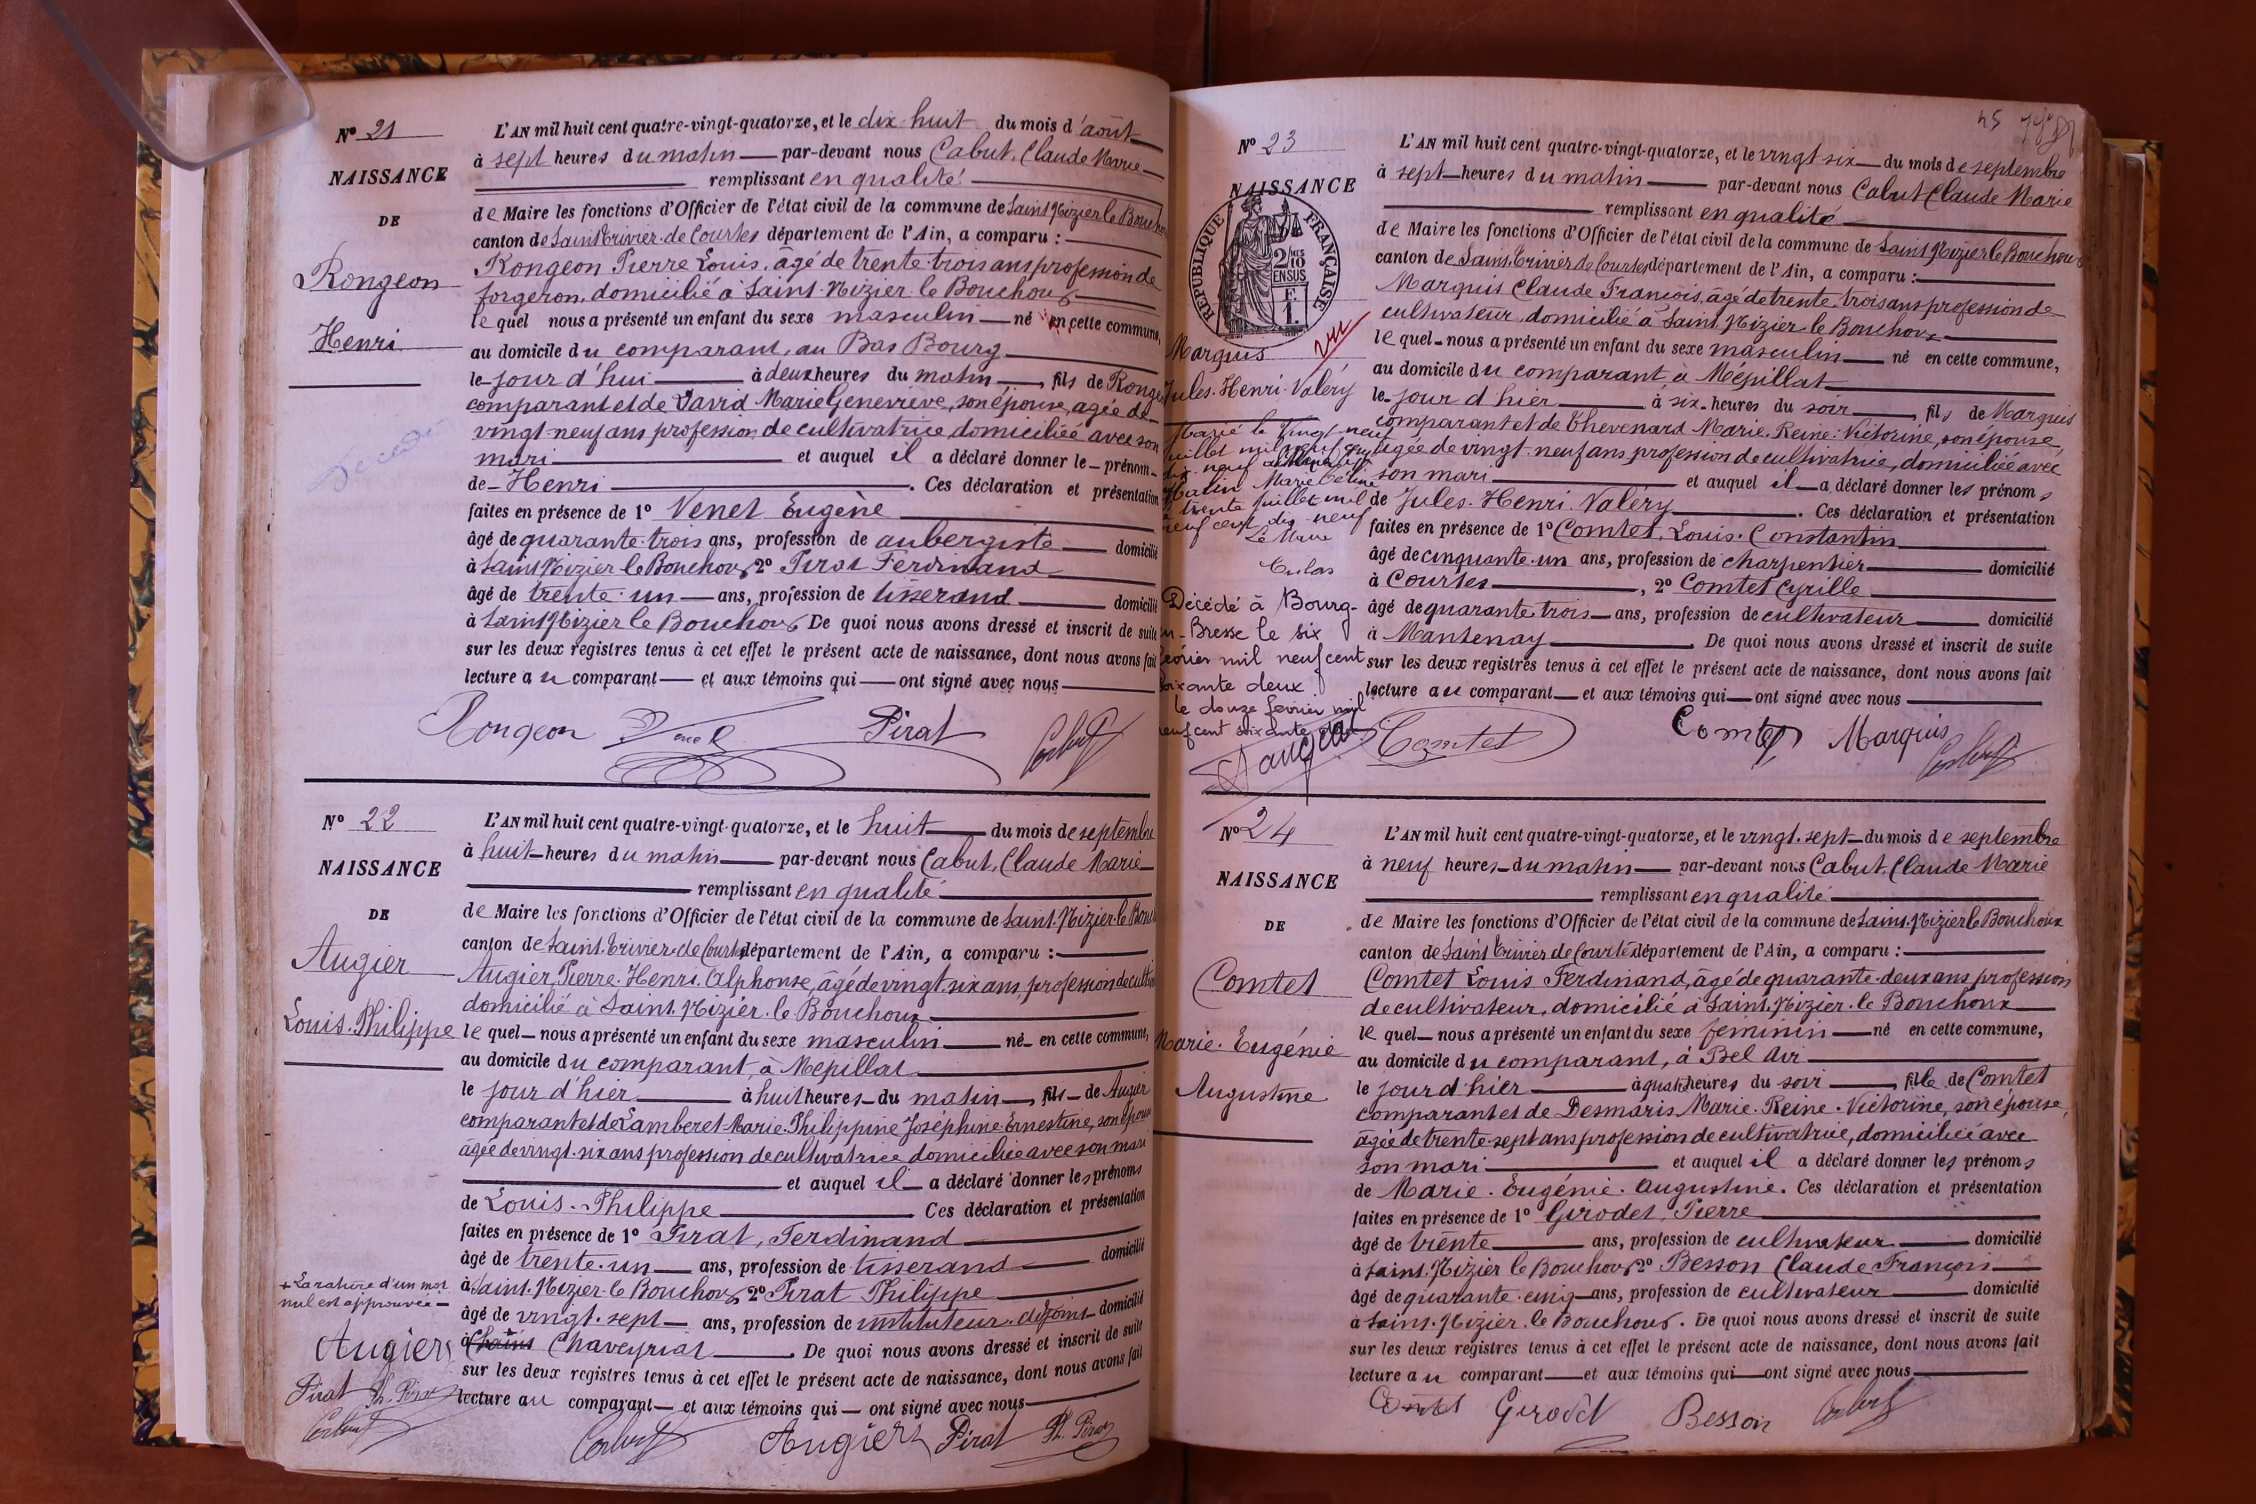 N° 21
NAISSANCE
DE
Rongeon
Henri
L'AN mil huit cent quatre-vingt-quatorze, et le dix huit du mois d'août
à sept heures du matin par-devant nous Cabut, Claude Marie
remplissant en qualité
de Maire les fonctions d'Officier de l'état civil de la commune de Saint Nizier le Bouchoux
canton de Saint Trivier de Courtes département de l'Ain, a comparu :
Rongeon Pierre Louis, âgé de trente-trois ans profession de
forgeron, domicilié à Saint-Nizier le Bouchoux
lequel nous a présenté un enfant du sexe masculin né en cette commune,
au domicile du comparant, au Bas Bourg
le jour d'hui à deux heures du matin, fils de Rongeon
comparant et de David Marie Geneviève, son épouse, agée de
vingt-neuf ans profession de cultivatrice domiciliée avec son
mari et auquel il a déclaré donner le prénom
de Henri. Ces déclaration et présentation
faites en présence de 1° Venet Eugène
âgé de quarante-trois ans, profession de aubergiste domicilié
à Saint Nizier le Bouchoux 2° Pirat Ferdinand
âgé de trente-un ans, profession de tisserand domicilié
à Saint Nizier le Bouchoux De quoi nous avons dressé et inscrit de suite
sur les deux registres tenus à cet effet le présent acte de naissance, dont nous avons fait
lecture au comparant et aux témoins qui ont signé avec nous
décédé
Rongeon Venet Pirat Cabut
N° 22
NAISSANCE
DE
Augier
Louis-Philippe
L'AN mil huit cent quatre-vingt-quatorze, et le huit du mois de septembre
à huit heures du matin par-devant nous Cabut, Claude Marie
remplissant en qualité
de Maire les fonctions d'Officier de l'état civil de la commune de Saint-Nizier-le Bouchoux
canton de Saint-Trivier-de Courtes département de l'Ain, a comparu :
Augier, Pierre-Henri Alphonse, âgé de vingt-six ans, profession de cultiv
domicilié à Saint-Nizier-le Bouchoux
lequel nous a présenté un enfant du sexe masculin né en cette commune,
au domicile du comparant, à Mépillat
le jour d'hier à huit heures du matin, fils de Augier
comparant et de Lamberet Marie-Philippine Joséphine Ernestine, son épouse
âgée de vingt-six ans profession de cultivatrice domiciliée avec son mari
et auquel il a déclaré donner les prénoms
de Louis-Philippe Ces déclaration et présentation
faites en présence de 1° Pirat, Ferdinand
âgé de trente-un ans, profession de tisserand domicilié
à Saint-Nizier-le Bouchoux 2° Pirat Philippe
âgé de vingt-sept ans, profession de instituteur-adjoint domicilié
à Chaveyriat. De quoi nous avons dressé et inscrit de suite
sur les deux registres tenus à cet effet le présent acte de naissance, dont nous avons fait
lecture au comparant et aux témoins qui ont signé avec nous
+ La rature d'un mot
nul est approuvée
Augier
Pirat Ph. Pirat
Cabut
Cabut Augier Pirat Ph. Pirat
45
N° 23
NAISSANCE
RÉPUBLIQUE FRANÇAISE
2/10
EN SUS
Marquis
vu
Jules-Henri-Valéry
Marié le vingt-neuf
juillet mil neuf cent
dix-neuf
Marie Céline
trente juillet mil
neuf cent dix-neuf
Le Maire
Décédé à Bourg-
en-Bresse le six
février mil neuf cent
soixante deux
le douze février mil
neuf cent soixante deux
L'AN mil huit cent quatre-vingt-quatorze, et le vingt six du mois de septembre
à sept heures du matin par-devant nous Cabut Claude Marie
remplissant en qualité
de Maire les fonctions d'Officier de l'état civil de la commune de Saint Nizier le Bouchoux
canton de Saint-Trivier de Courtes département de l'Ain, a comparu :
Marquis Claude François, âgé de trente-trois ans profession de
cultivateur, domicilié à Saint Nizier le Bouchoux
lequel nous a présenté un enfant du sexe masculin né en cette commune,
au domicile du comparant, à Mépillat
le jour d'hier à six heures du soir, fils de Marquis
comparant et de Chevenard Marie-Reine-Victorine, son épouse,
âgée de vingt-neuf ans profession de cultivatrice, domiciliée avec
son mari et auquel il a déclaré donner les prénoms
de Jules-Henri-Valéry. Ces déclaration et présentation
faites en présence de 1° Comtet, Louis-Constantin
âgé de cinquante-un ans, profession de charpentier domicilié
à Courtes, 2° Comtet Cyrille
âgé de quarante trois ans, profession de cultivateur domicilié
à Mantenay De quoi nous avons dressé et inscrit de suite
sur les deux registres tenus à cet effet le présent acte de naissance, dont nous avons fait
lecture au comparant et aux témoins qui ont signé avec nous
Comtet Comtet Marquis Cabut
N° 24
NAISSANCE
DE
Comtet
Marie-Eugénie
Augustine
L'AN mil huit cent quatre-vingt-quatorze, et le vingt-sept du mois de septembre
à neuf heures du matin par-devant nous Cabut, Claude Marie
remplissant en qualité
de Maire les fonctions d'Officier de l'état civil de la commune de Saint-Nizier le Bouchoux
canton de Saint Trivier de Courtes département de l'Ain, a comparu :
Comtet Louis Ferdinand, âgé de quarante-deux ans profession
de cultivateur, domicilié à Saint-Nizier-le Bouchoux
lequel nous a présenté un enfant du sexe féminin né en cette commune,
au domicile du comparant, à Bel Air
le jour d'hier à quatre heures du soir, fille de Comtet
comparant et de Desmaris Marie-Reine-Victorine, son épouse,
âgée de trente-sept ans profession de cultivatrice, domiciliée avec
son mari et auquel il a déclaré donner les prénoms
de Marie-Eugénie-Augustine. Ces déclaration et présentation
faites en présence de 1° Girodet, Pierre
âgé de trente ans, profession de cultivateur domicilié
à Saint-Nizier le Bouchoux 2° Besson Claude François
âgé de quarante-cinq ans, profession de cultivateur domicilié
à Saint-Nizier-le Bouchoux. De quoi nous avons dressé et inscrit de suite
sur les deux registres tenus à cet effet le présent acte de naissance, dont nous avons fait
lecture au comparant et aux témoins qui ont signé avec nous
Comtet Girodet Besson Cabut